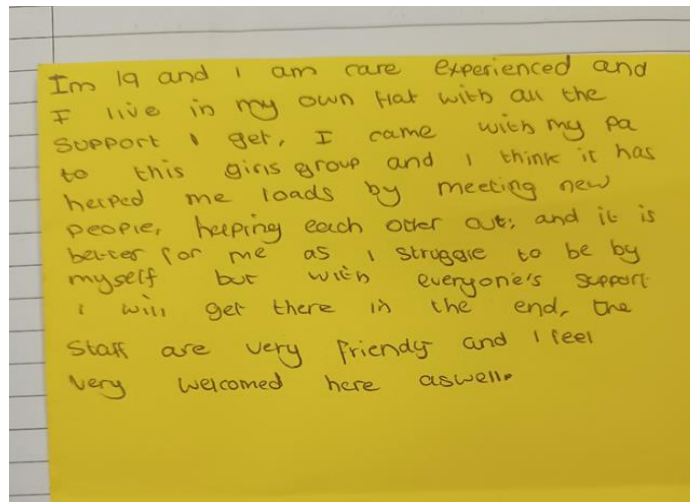 Im 19 and I am care experienced and
I live in my own flat with all the
support I get, I came with my pa
to this girls group and I think it has
helped me loads by meeting new
people, helping each other out, and it is
better for me as I struggle to be by
myself but with everyone's support
i will get there in the end, the
staff are very friendly and I feel
very welcomed here aswell.